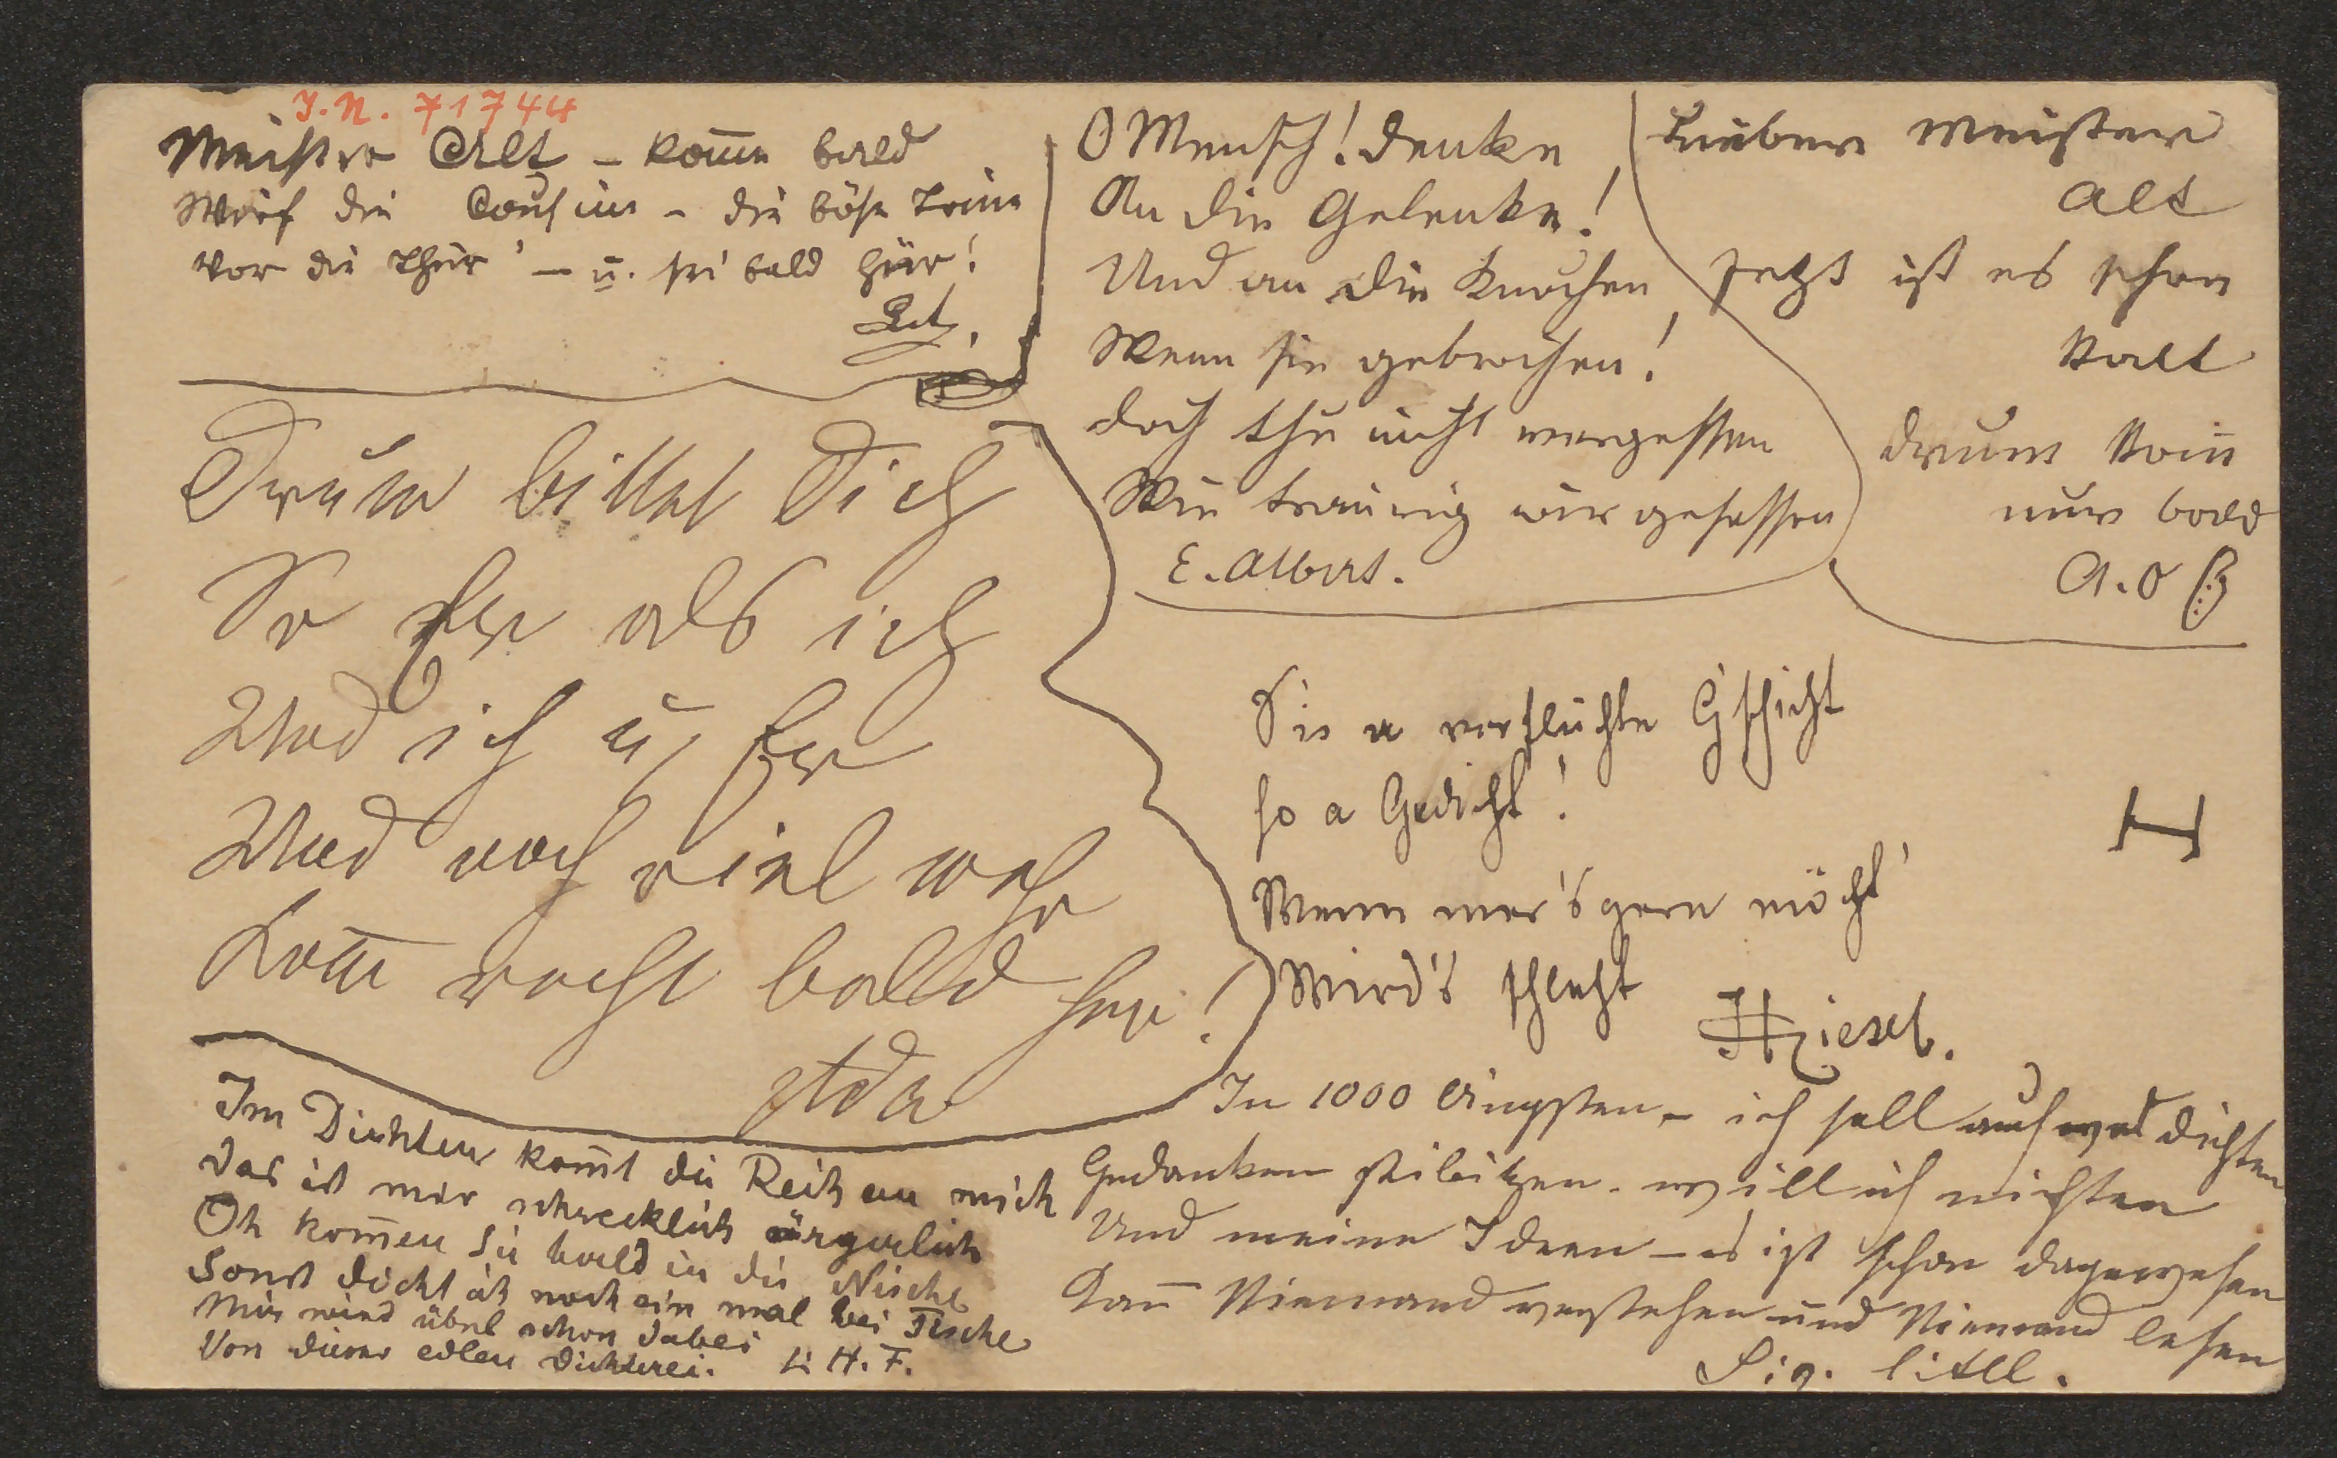 J.N. 71744
Meister Alt – kom̅e bald
Wirf die Cousine – die böse Trine
Vor die Thür' – u. sei bald hür!
O Mensch! denke
An die Gelenke!
Und an die Knochen,
Wenn sie gebrochen!
doch thu nicht vergessen
Wie traurig wir gesessen
E. Albert.
Lieber Meister
Alt
Jetzt ist es schon
kalt
drum kom̅
nur bald
A. O
Drum bittet Dich
So Er als ich
Und ich u. Er
Und noch viel mehr
Kom̅ recht bald her!
Sis a verfluchte G'schicht
so a Gedicht!
Wenn mer's gern möcht'
Wird's schlecht
H
Im Dichten kom̅t die Reih an mich
Das ist mir schrecklich ärgerlich
Oh kom̅en Sie bald in die Nische
Sonst dicht ich noch ein mal bei Tische
Mir wird übel schon dabei
Von dieser edlen Dichterei. L. H. F.
In 1000 Ängsten – ich soll auch was dichten
Gedanken stibitzen – will ich mit nichten
Und meine Ideen – es ist schon dagewesen
Kan̅ Niemand verstehen und Niemand lesen
Sig.